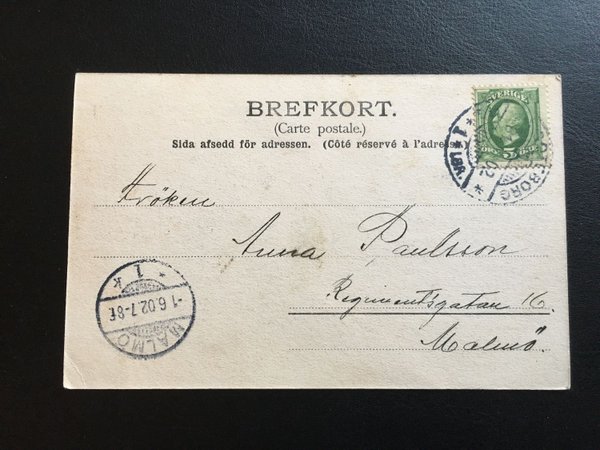 BREFKORT.
(Carte postale.)
Sida afsedd för adressen. (Côté réservé à l'adress
SVERIGE
5
Fröken
Anna Paulsson
Regimentsgatan 16
Malmö.
1 k
-1.6.02.7-8F
MALMÖ